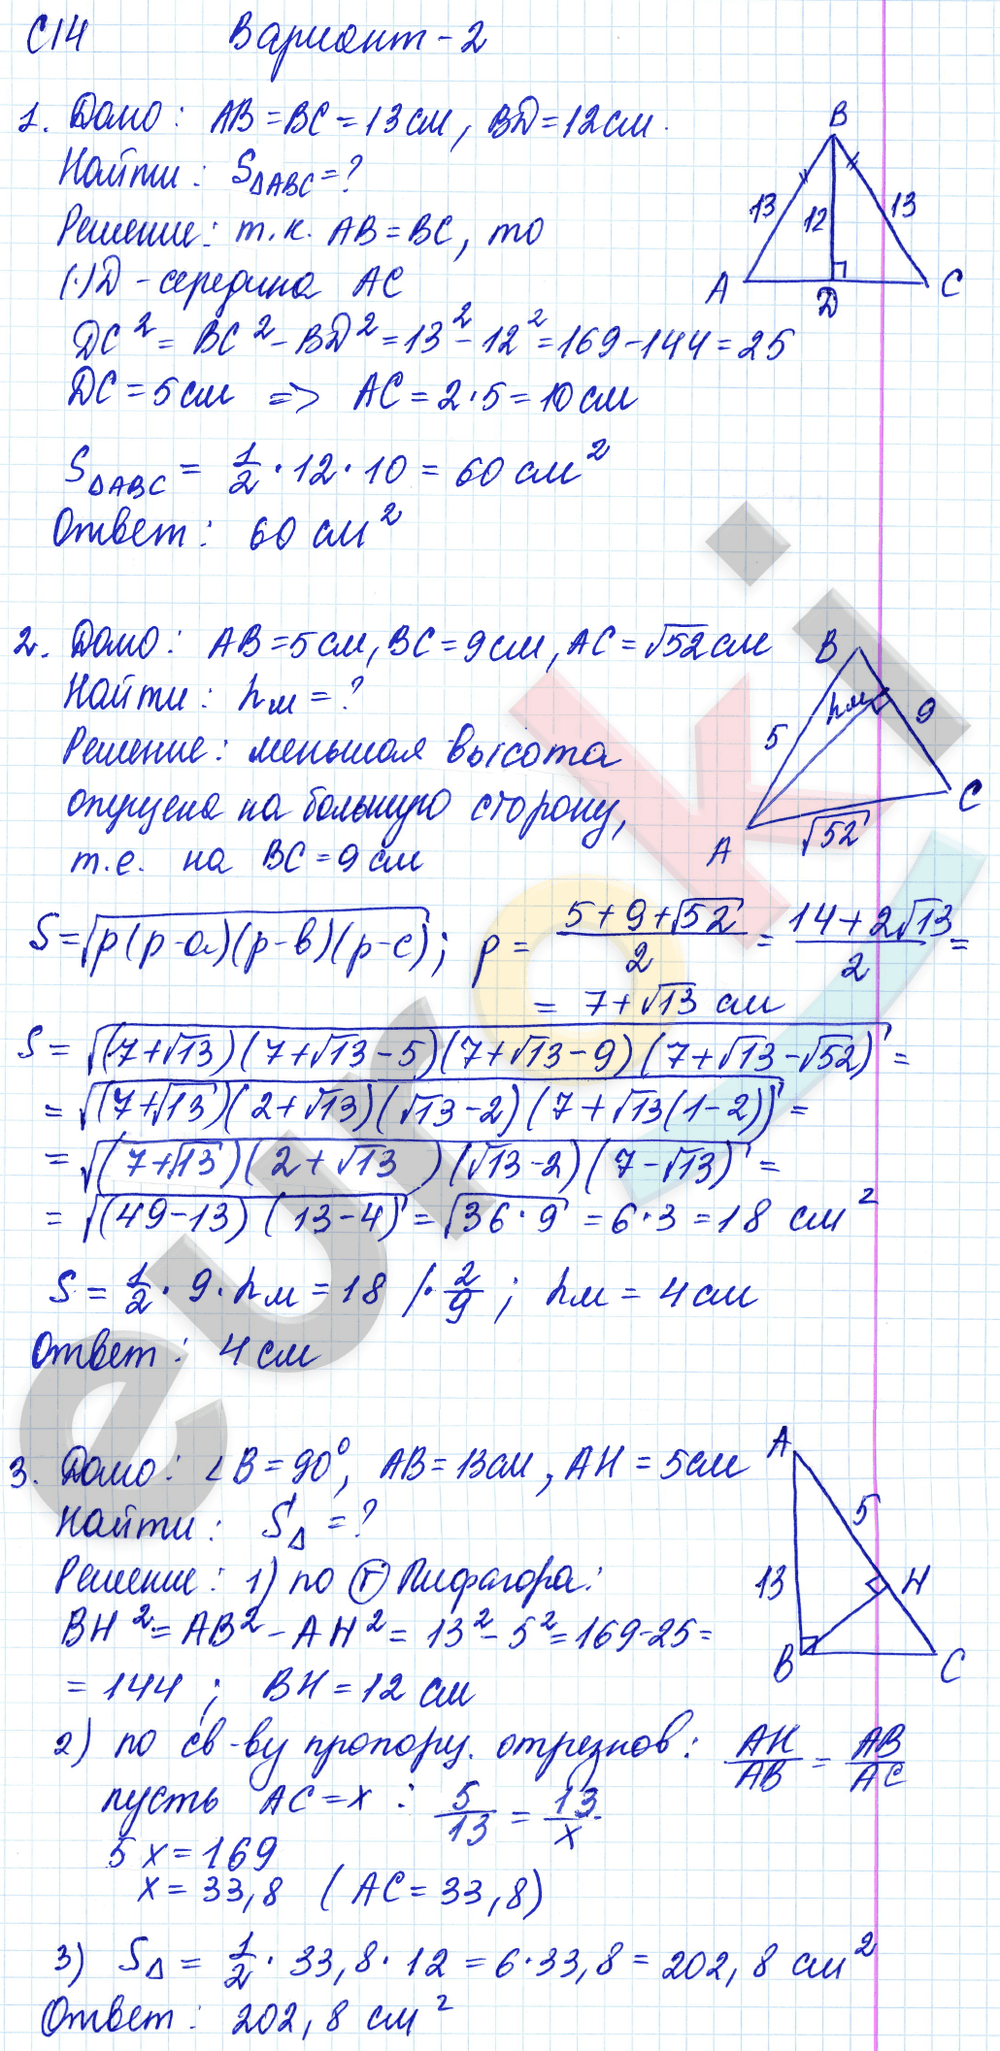 С14 Вариант-2
1. Дано: AB=BC=13см, BD=12см.
Найти: S△ABC=?
Решение: т.к. AB=BC, то
(·)D - середина AC
DC² = BC² - BD² = 13² - 12² = 169 - 144 = 25
DC = 5см => AC = 2·5 = 10см
S△ABC = 1/2 · 12 · 10 = 60 см²
Ответ: 60 см²
B
13
12
13
A
D
C
2. Дано: AB=5см, BC=9см, AC=√52см
Найти: hм = ?
Решение: меньшая высота
опущена на большую сторону,
т.е. на BC=9см
B
hм
5
9
C
A
√52
S=√(p(p-a)(p-b)(p-c)); p = (5+9+√52)/2 = (14+2√13)/2 =
= 7+√13 см
S = √((7+√13)(7+√13-5)(7+√13-9)(7+√13-√52)) =
= √((7+√13)(2+√13)(√13-2)(7+√13(1-2))) =
= √((7+√13)(2+√13)(√13-2)(7-√13)) =
= √((49-13)(13-4)) = √(36·9) = 6·3 = 18 см²
S = 1/2 · 9 · hм = 18 /· 2/9; hм = 4см
Ответ: 4см
3. Дано: ∠B=90°, AB=13см, AH=5см
Найти: S△=?
Решение: 1) по Ⓣ Пифагора:
BH² = AB² - AH² = 13² - 5² = 169-25=
= 144; BH = 12 см
2) по св-ву пропорц. отрезков: AH/AB = AB/AC
пусть AC=x: 5/13 = 13/x
5x=169
x=33,8 (AC=33,8)
3) S△ = 1/2 · 33,8 · 12 = 6·33,8 = 202,8 см²
Ответ: 202,8 см²
A
5
13
H
B
C
euroki